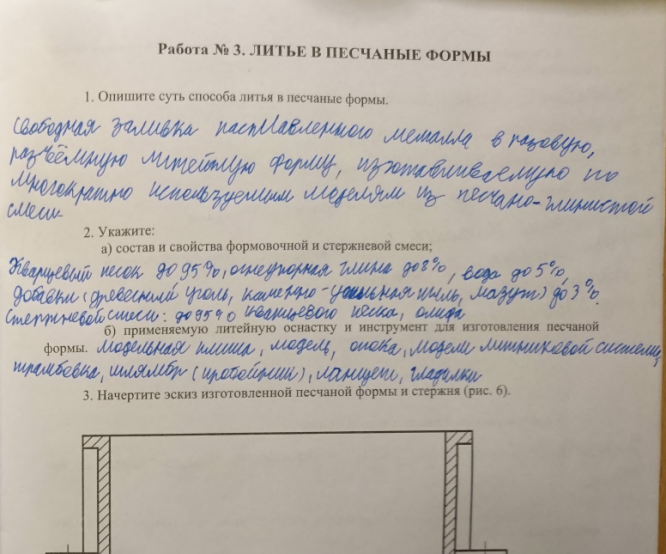 Работа № 3. ЛИТЬЕ В ПЕСЧАНЫЕ ФОРМЫ
1. Опишите суть способа литья в песчаные формы.
Свободная заливка расплавленного металла в разовую,
разъёмную литейную форму, изготавливаемую по
многократно используемым моделям из песчано-глинистой
смеси
2. Укажите:
а) состав и свойства формовочной и стержневой смеси;
Кварцевый песок до 95%, огнеупорная глина до 8%, вода до 5%,
добавки (древесный уголь, каменно-угольная пыль, мазут) до 3%.
Стержневой смеси: до 95% кварцевого песка, олифа
б) применяемую литейную оснастку и инструмент для изготовления песчаной
формы. Модельная плита, модель, опока, модели литниковой системы,
трамбовка, (пробойник), ланцет, гладилки
3. Начертите эскиз изготовленной песчаной формы и стержня (рис. 6).